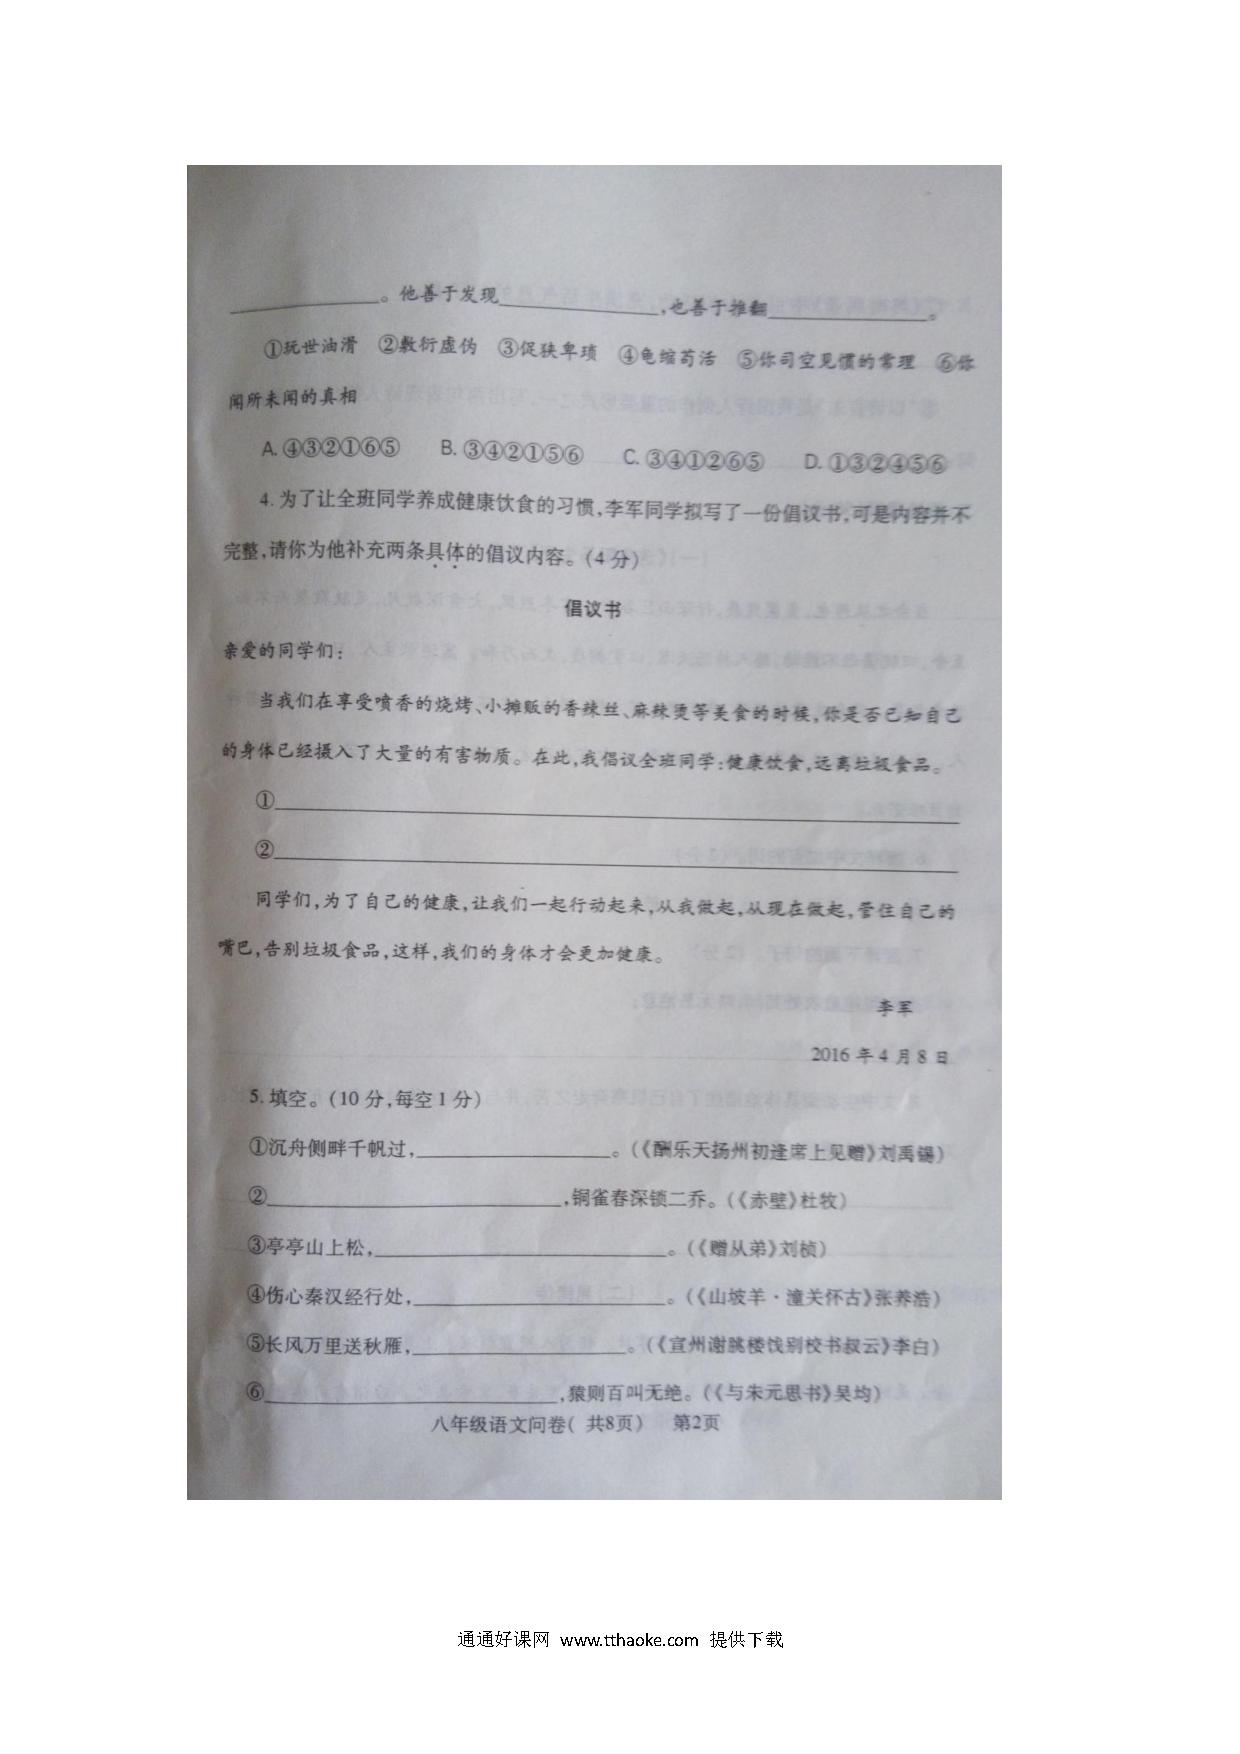 ____________。他善于发现____________,也善于推翻____________。
①玩世油滑 ②敷衍虚伪 ③促狭卑琐 ④龟缩苟活 ⑤你司空见惯的常理 ⑥你
闻所未闻的真相
A. ④③②①⑥⑤ B. ③④②①⑤⑥ C. ③④①②⑥⑤ D. ①③②④⑤⑥
4. 为了让全班同学养成健康饮食的习惯,李军同学拟写了一份倡议书,可是内容并不
完整,请你为他补充两条具体的倡议内容。(4分)
倡议书
亲爱的同学们:
当我们在享受喷香的烧烤、小摊贩的香辣丝、麻辣烫等美食的时候,你是否已知自己
的身体已经摄入了大量的有害物质。在此,我倡议全班同学:健康饮食,远离垃圾食品。
①____________
②____________
同学们,为了自己的健康,让我们一起行动起来,从我做起,从现在做起,管住自己的
嘴巴,告别垃圾食品,这样,我们的身体才会更加健康。
李军
2016年4月8日
5. 填空。(10分,每空1分)
①沉舟侧畔千帆过,____________。(《酬乐天扬州初逢席上见赠》刘禹锡)
②____________,铜雀春深锁二乔。(《赤壁》杜牧)
③亭亭山上松,____________。(《赠从弟》刘桢)
④伤心秦汉经行处,____________。(《山坡羊·潼关怀古》张养浩)
⑤长风万里送秋雁,____________。(《宣州谢朓楼饯别校书叔云》李白)
⑥____________,猿则百叫无绝。(《与朱元思书》吴均)
八年级语文问卷( 共8页) 第2页
通通好课网 www.tthaoke.com 提供下载